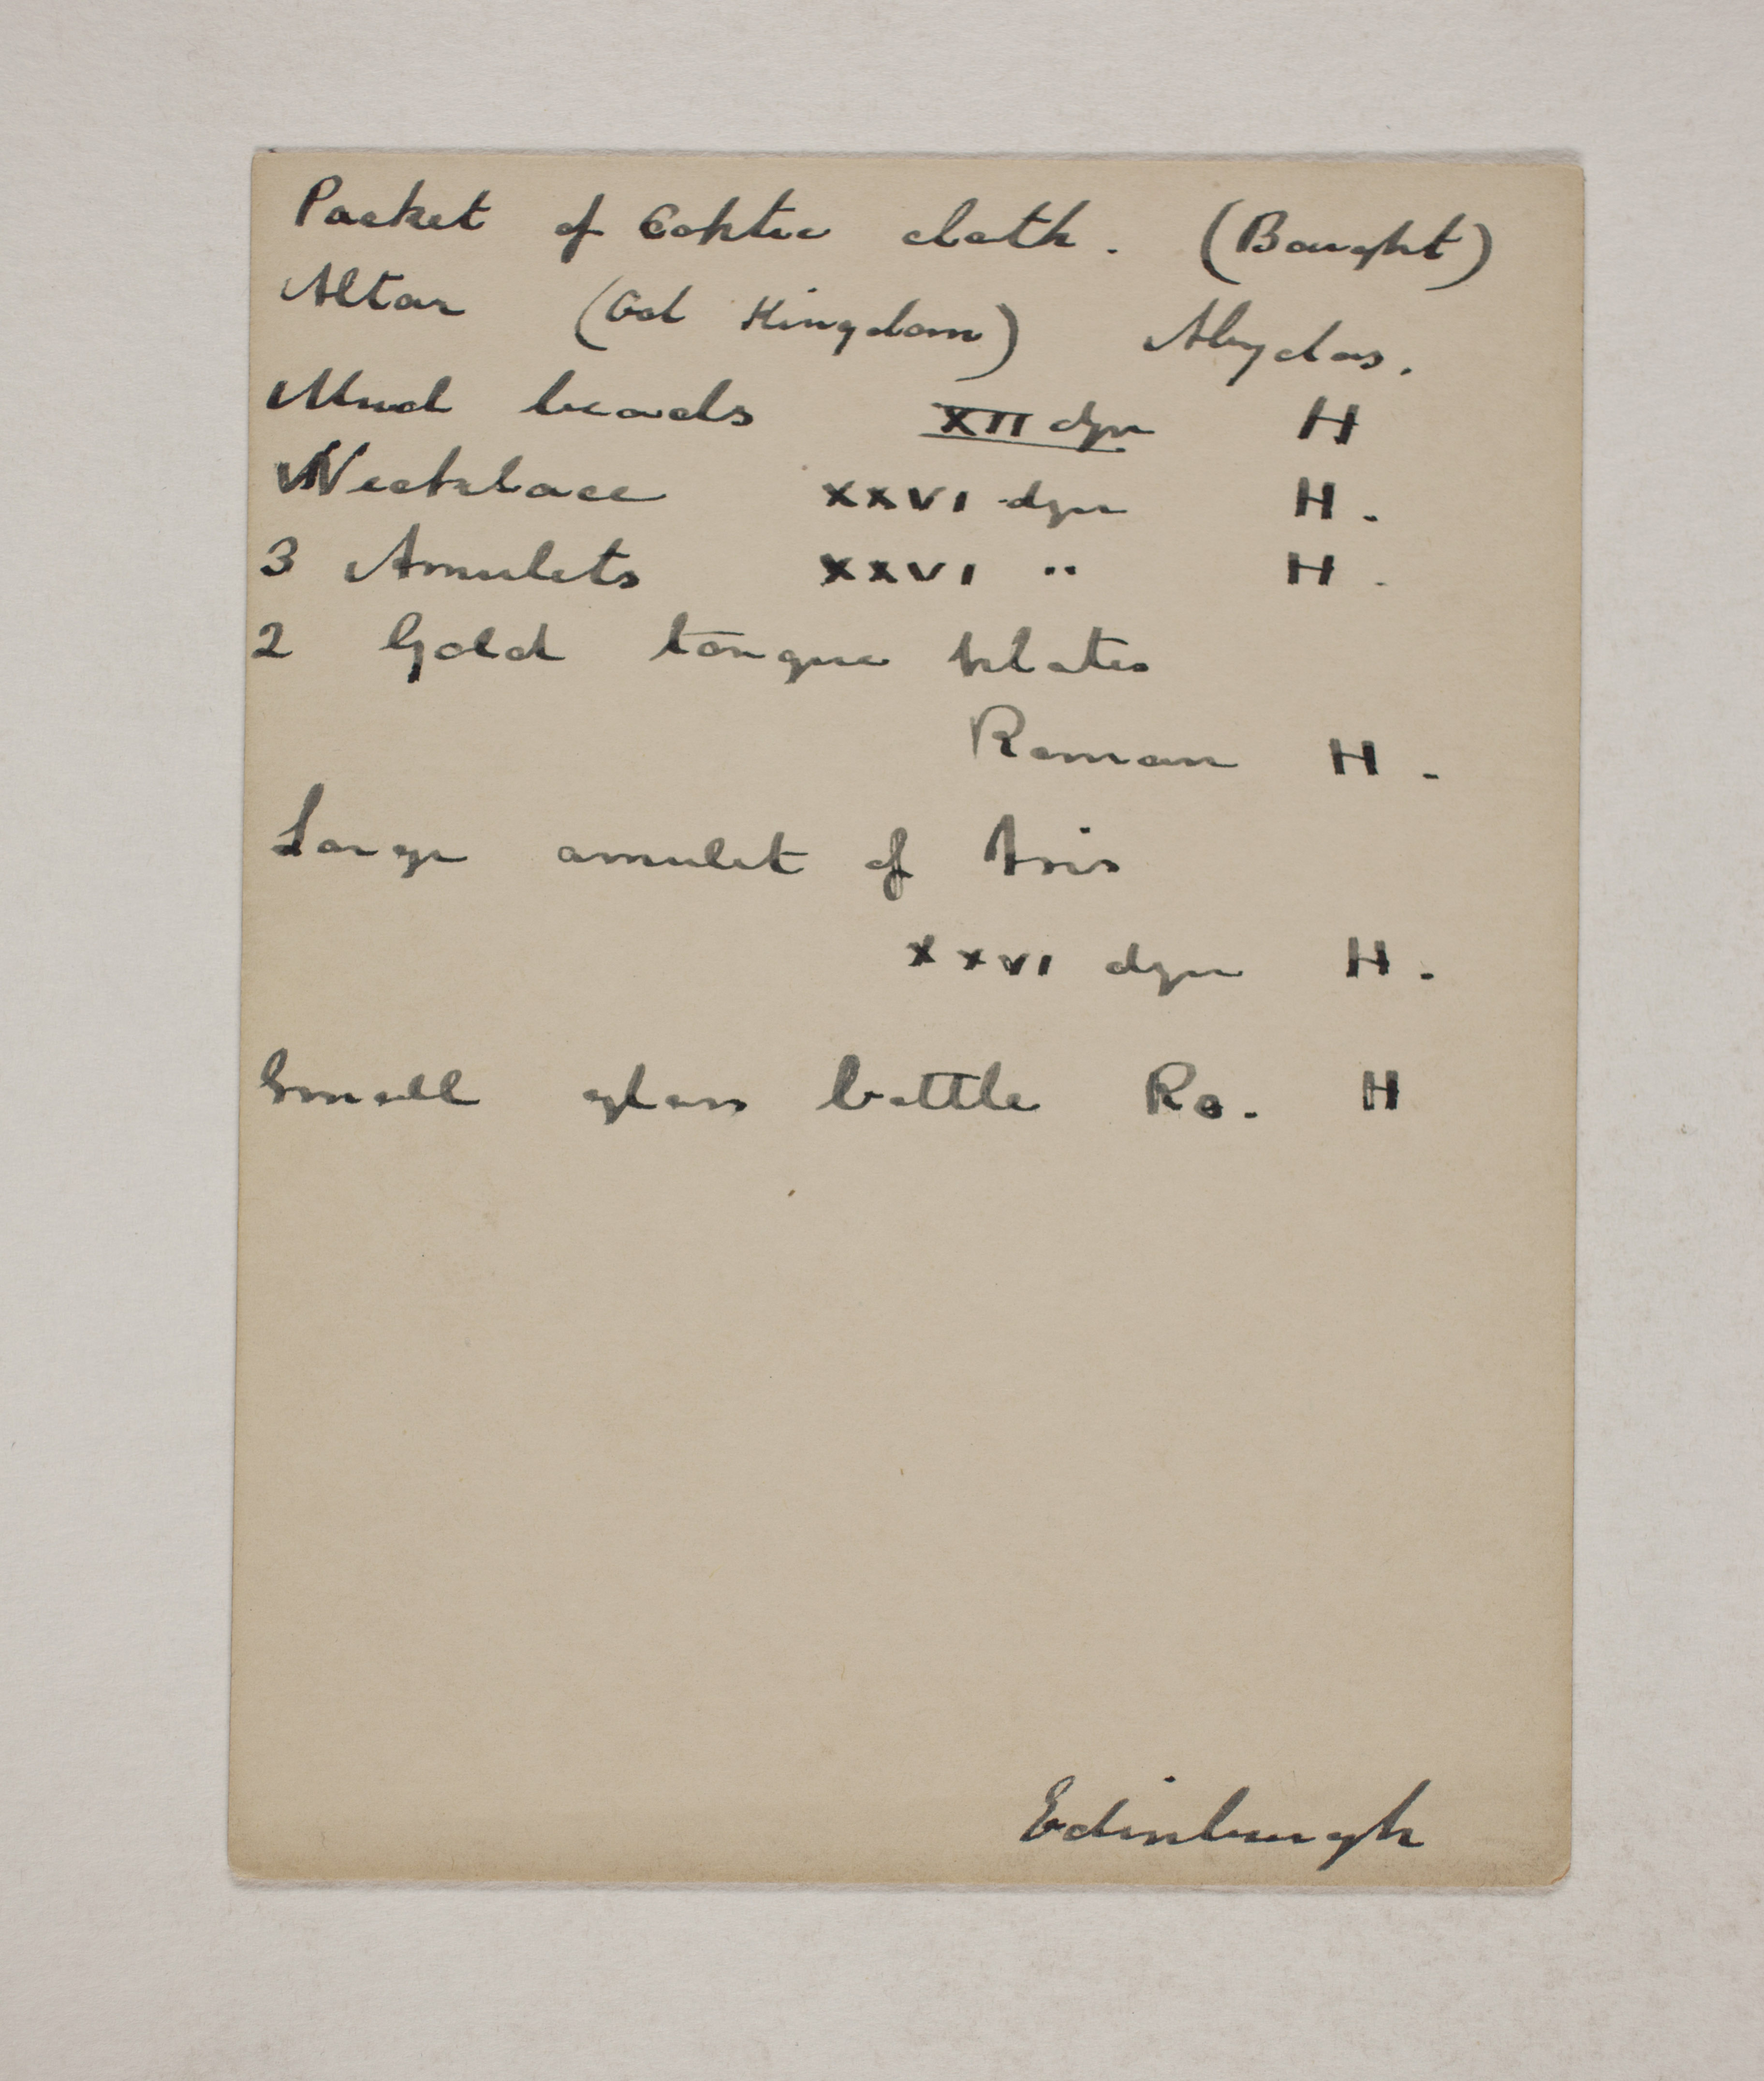 Packet of Coptic cloth. (Bought)
Altar (Old Kingdom) Abydos.
Mud beads XII dyn H
Necklace XXVI dyn H.
3 Amulets XXVI " H.
2 Gold tongue plates
Roman H.
Large amulet of Isis
XXVI dyn H.
Small glass bottle Ro. H
Edinburgh